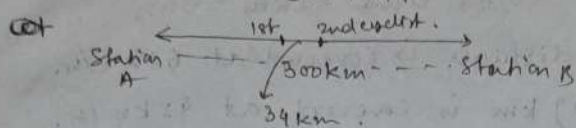 1st 2nd cyclist.
Station A 300km Station B
34km.